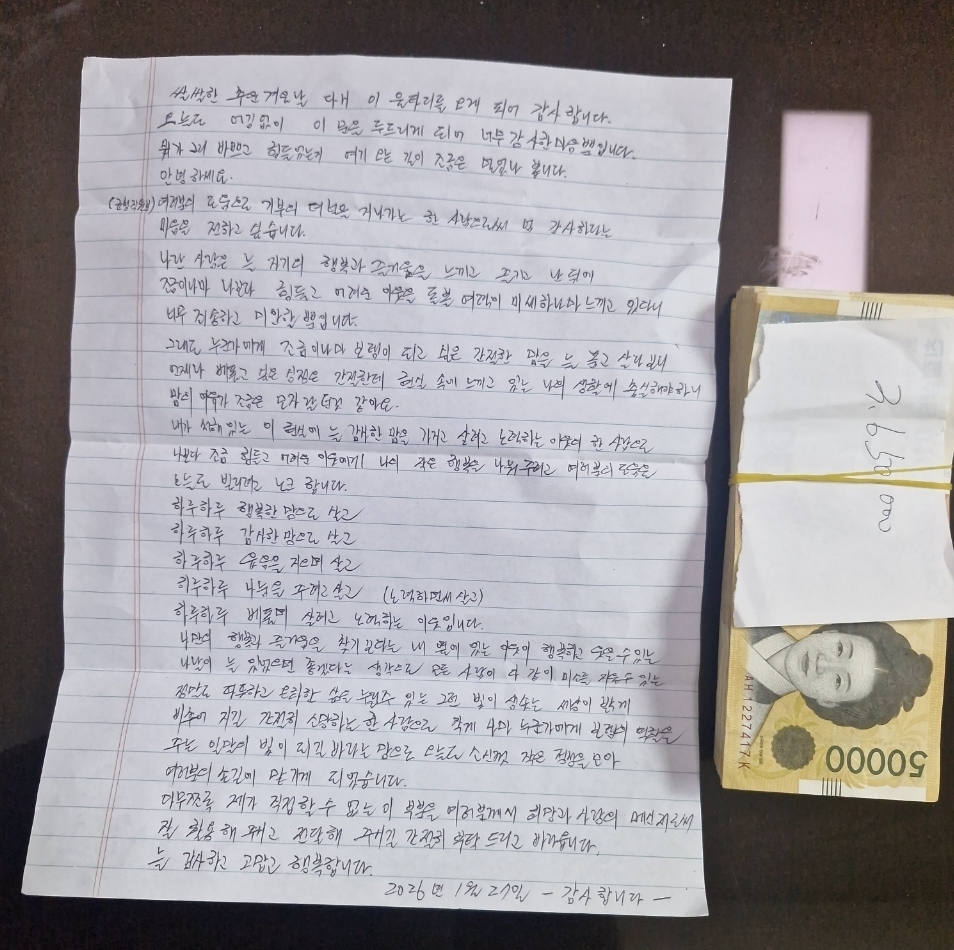 쌀쌀한 추운 겨울날 다시 이 울타리를 오게 되어 감사합니다.
오늘도 어김없이 이 문을 두드리게 되어 너무 감사한 마음뿐입니다.
뭐가 그리 바쁘고 힘들었는지 여기 오는 길이 조금은 멀었나 봅니다.
안녕하세요.
여러분의 도움으로 기부의 더봄을 지나가는 한 사람으로써 넘 감사하다는
마음을 전하고 싶습니다.
나란 사람은 늘 자기의 행복과 즐거움을 느끼고 즐기고 난 뒤에
조금이나마 나보다 힘들고 어려운 이웃을 돌볼 여력이 미세하나마 느끼고 있다니
너무 죄송하고 미안할 뿐입니다.
그래도 누군가에게 조금이나마 보탬이 되고 싶은 간절한 맘을 늘 품고 살다보니
언제나 베풀고 싶은 심정은 간절한데 현실 속에 느끼고 있는 나의 생활에 충실해야하니
맘의 여유가 조금은 모자란 것 같아요.
내가 처해 있는 이 현실에 늘 감사한 맘을 가지고 살려고 노력하는 이웃의 한 사람으로
나보다 조금 힘들고 어려운 이웃에게 나의 작은 행복을 나눠주려고 여러분의 도움을
오늘도 빌리려고 노크 합니다.
하루하루 행복한 맘으로 살고
하루하루 감사한 맘으로 살고
하루하루 웃음을 지으며 살고
하루하루 나눔을 주려고 살고 (노력하면서 살고)
하루하루 베풀며 살려고 노력하는 이웃입니다.
나만의 행복과 즐거움을 찾기 보다는 내 옆에 있는 이웃이 행복하고 웃을 수 있는
나날이 늘 있었으면 좋겠다는 생각으로 모든 사람이 다 같이 미소를 지을 수 있는
정말로 따뜻하고 포근한 삶을 누릴 수 있는 그런 빛이 샘솟는 세상이 밝게
비추어 지길 간절히 소망하는 한 사람으로 작게 나마 누군가에게 보탬의 역할을
주는 일만의 빛이 되길 바라는 맘으로 오늘도 소신껏 작은 정성을 모아
여러분의 손길에 맡기게 되었습니다.
아무쪼록 제가 직접할 수 없는 이 부분을 여러분께서 희망과 사랑의 메신저로써
잘 활용해 주시고 전달해 주시길 간절히 부탁 드리고 바라옵니다.
늘 감사하고 고맙고 행복합니다.
2026년 1월 27일 - 감사합니다 -
50000
AH1227417K